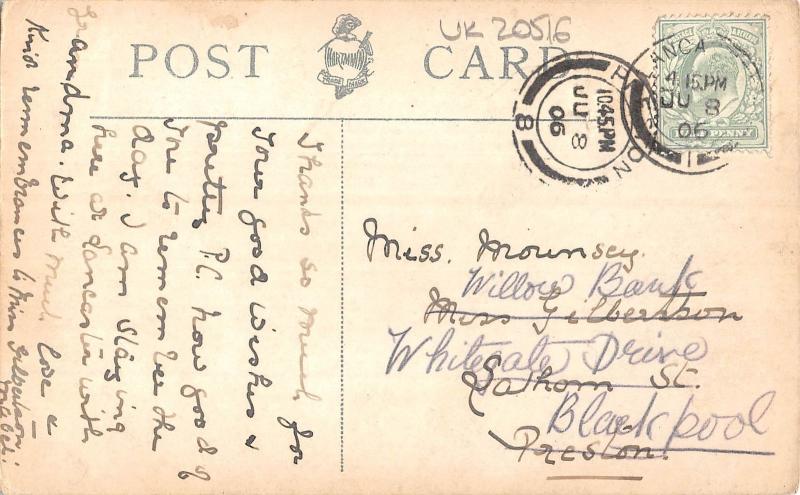 UK 20516
POST CARD
HARTMANN
TRADE MARK
LANCA
4.15.PM
JU 8
06
1
PRESTON
10.45.PM
JU 8
06
8
HALF PENNY
Thanks so much for
your good wishes &
pretty P.C. how good of
you to remember the
day. I am staying
here at Lancaster with
Grandma. With much love &
Kind remembrances to Miss Gilbertson
Mabel.
Miss. Mounsey.
Willow Bank
Miss Gilbertson
Whitegate Drive
Lathom St.
Blackpool
Preston.